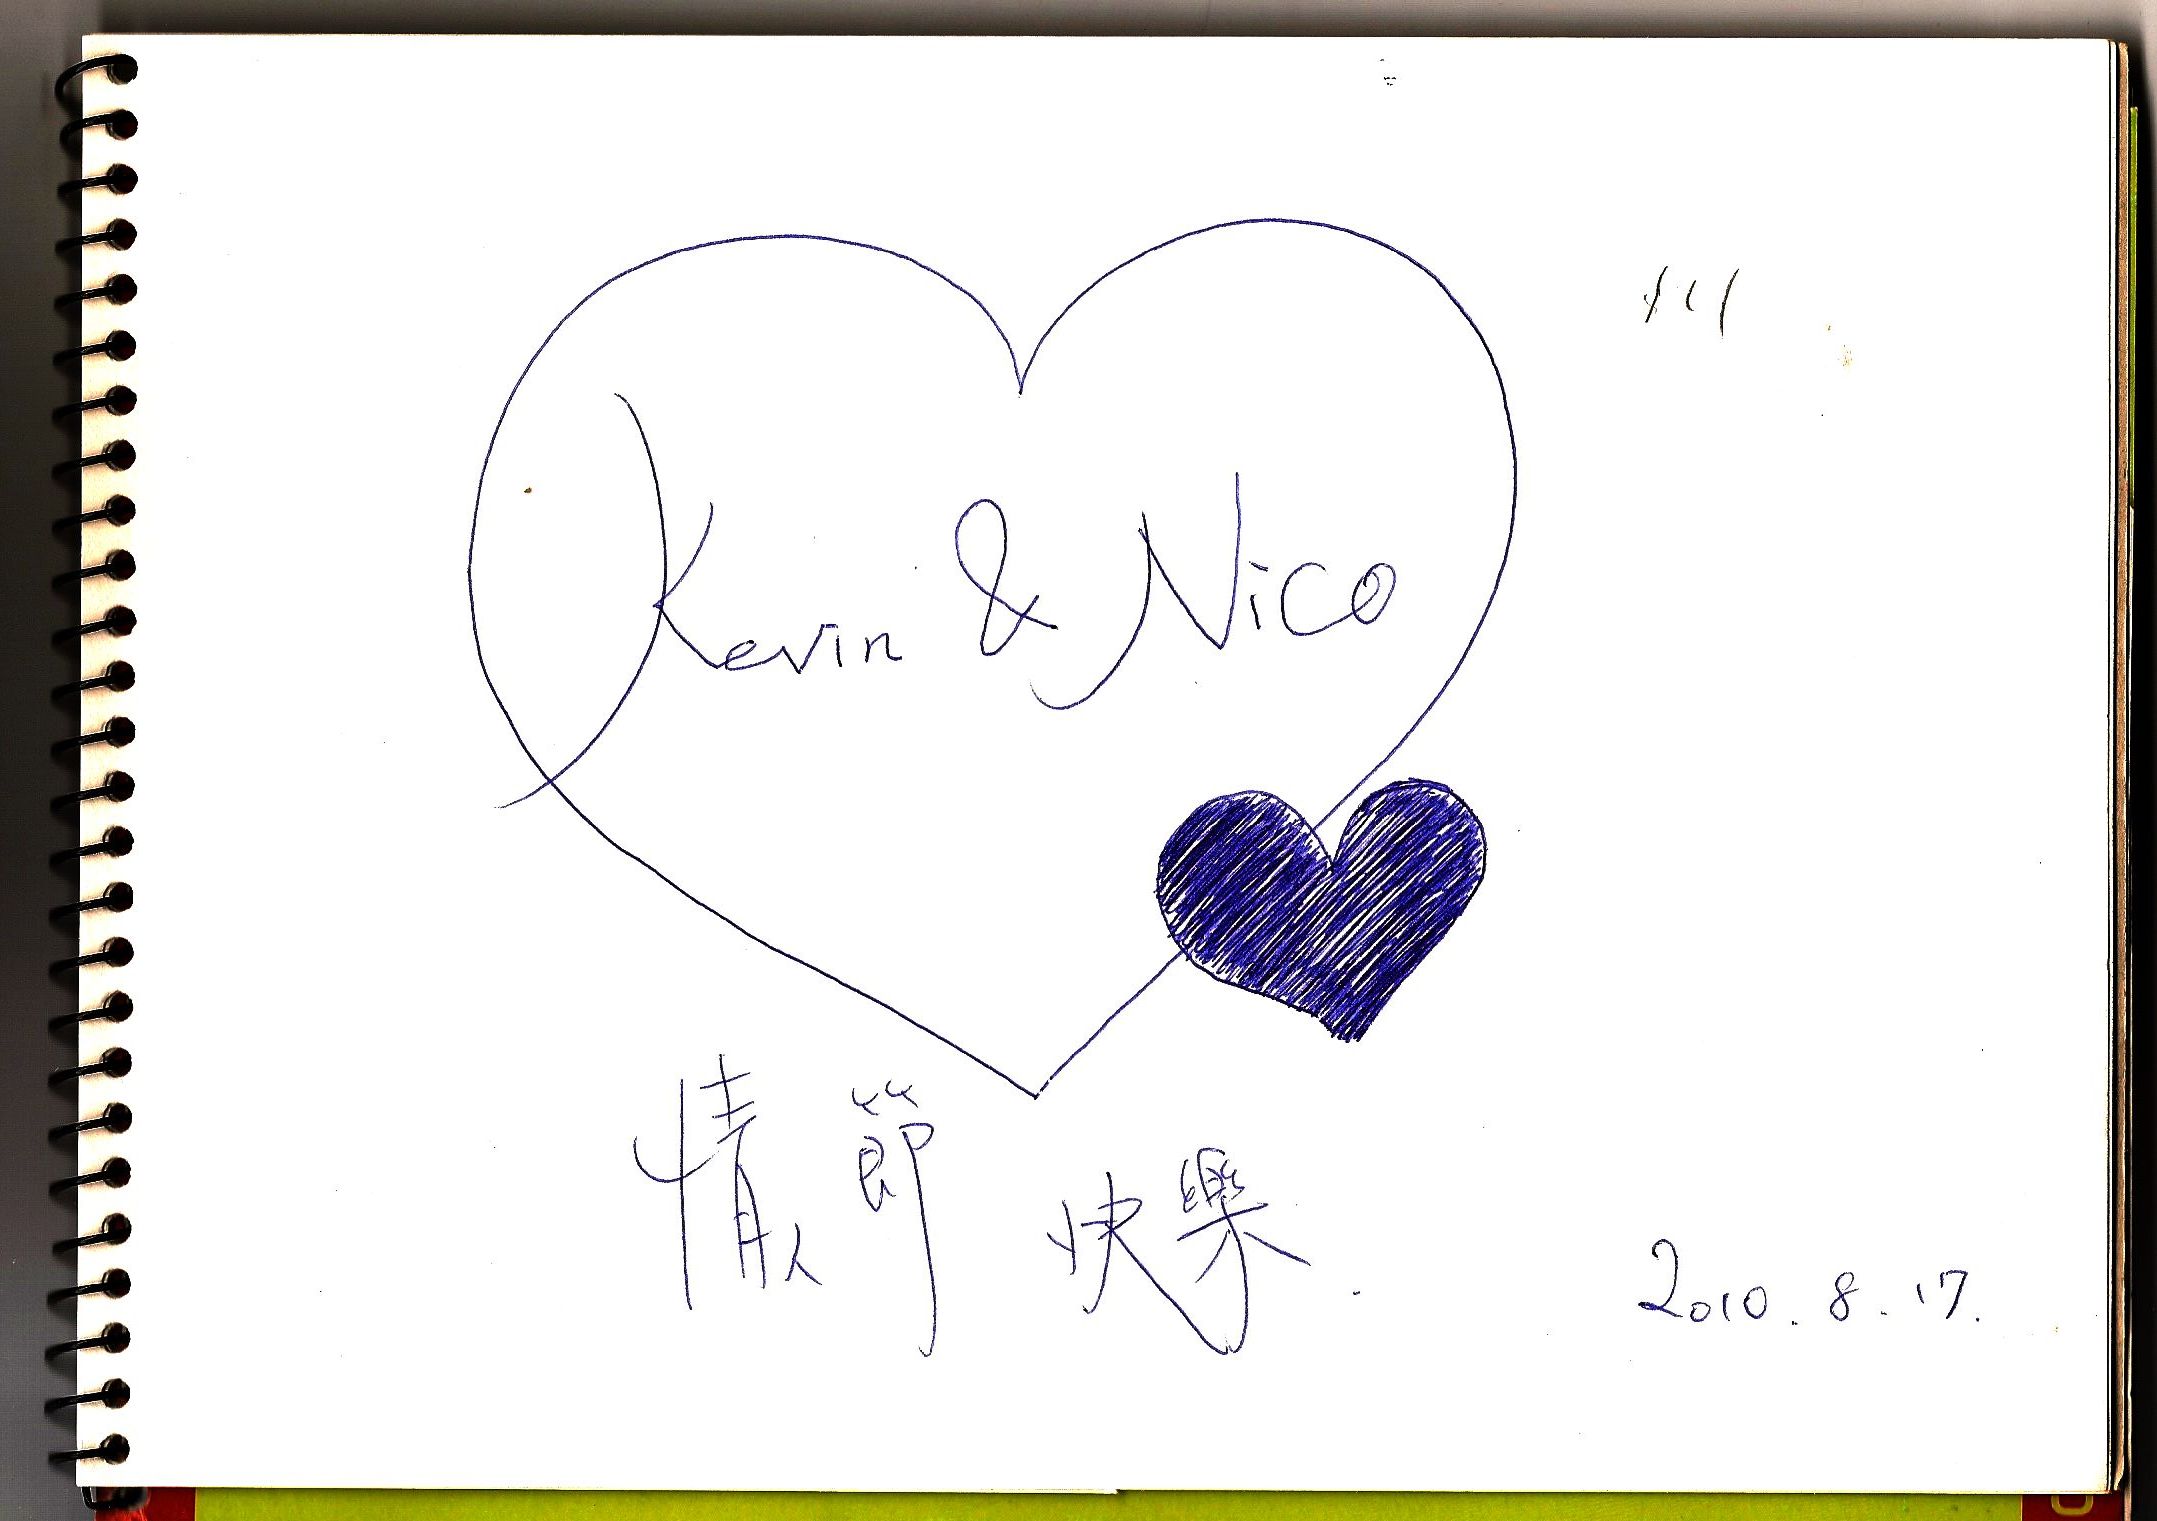 Kevin & Nico
情人節 快樂.
2010. 8. 17.